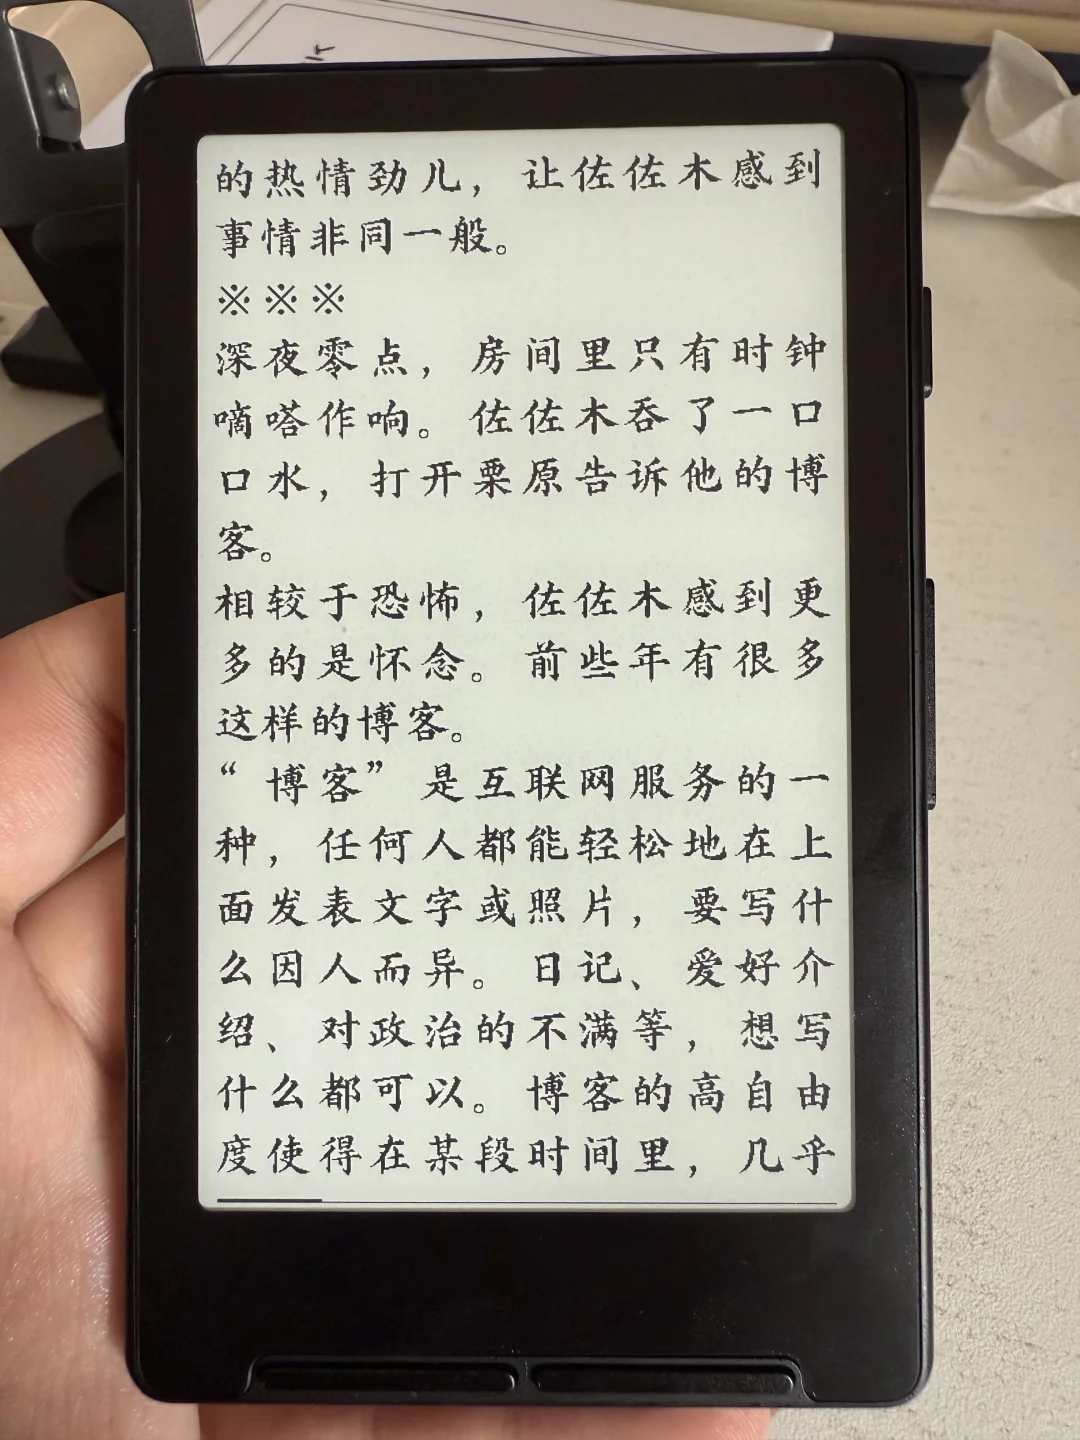 的热情劲儿，让佐佐木感到
事情非同一般。
※※※
深夜零点，房间里只有时钟
嘀嗒作响。佐佐木吞了一口
口水，打开栗原告诉他的博
客。
相较于恐怖，佐佐木感到更
多的是怀念。前些年有很多
这样的博客。
“博客”是互联网服务的一
种，任何人都能轻松地在上
面发表文字或照片，要写什
么因人而异。日记、爱好介
绍、对政治的不满等，想写
什么都可以。博客的高自由
度使得在某段时间里，几乎